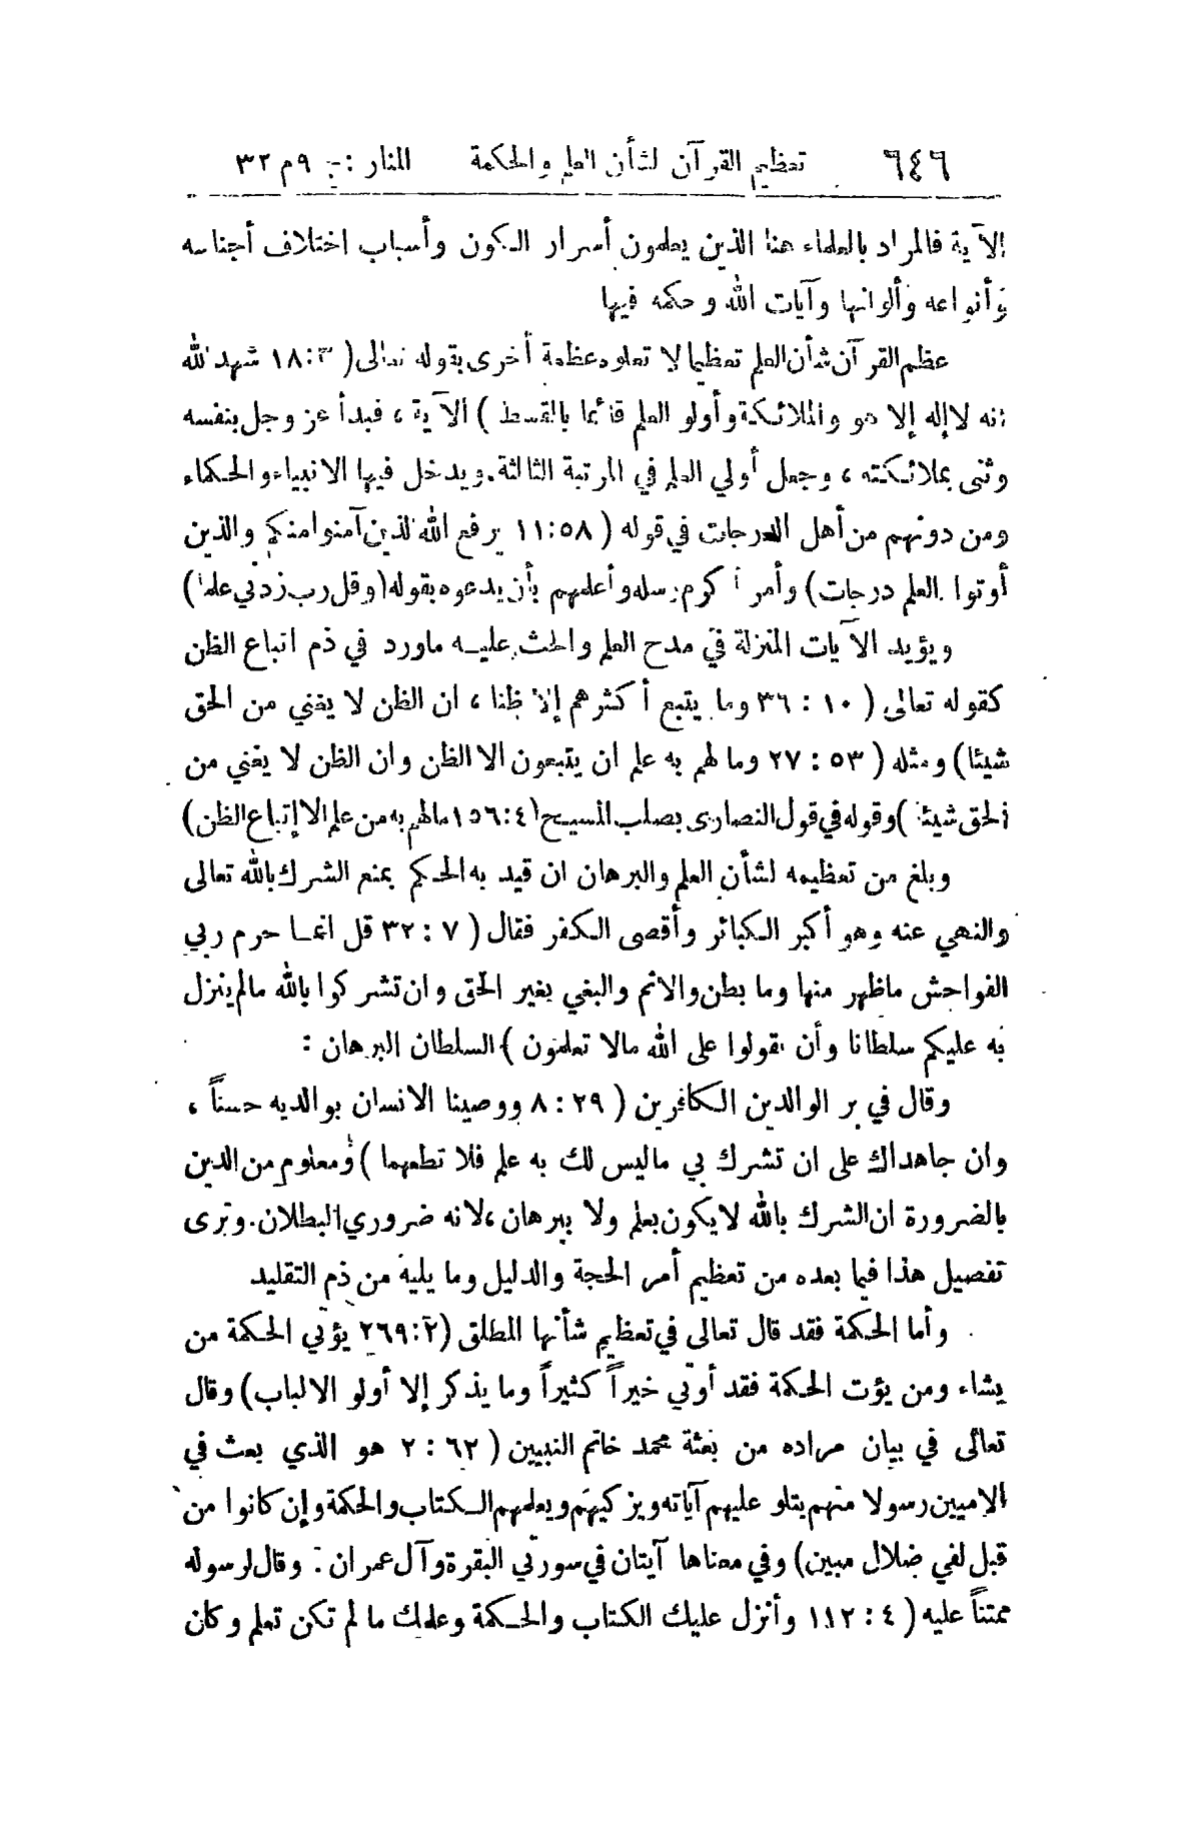 ٦٤٦ تعظيم القرآن لشأن العلم والحكمة المنار : ج ٩ م ٣٢
الآية فالمراد بالعلماء هنا الذين يعلمون أسرار الكون وأسباب اختلاف أجناسه
وأنواعه وألوانها وآيات الله وحكمه فيها
عظم القرآن شأن العلم تعظيما لا تعلوه عظمة أخرى بقوله تعالى ( ٣ : ١٨ شهد الله
انه لا إله إلا هو والملائكة وأولو العلم قائما بالقسط ) الآية ، فبدأ عز وجل بنفسه
وثنى بملائكته ، وجعل أولي العلم في المرتبة الثالثة . ويدخل فيها الانبياء والحكماء
ومن دونهم من أهل الدرجات في قوله ( ٥٨ : ١١ يرفع الله الذين آمنوا منكم والذين
أوتوا العلم درجات ) وأمر أكرم رسله وأعلمهم بأن يدعوه بقوله ( وقل رب زدني علما )
ويؤيد الآيات المنزلة في مدح العلم والحث عليه ماورد في ذم اتباع الظن
كقوله تعالى ( ١٠ : ٣٦ وما يتبع أكثرهم إلا ظنا ، ان الظن لا يغني من الحق
شيئا ) ومثله ( ٥٣ : ٢٧ وما لهم به علم ان يتبعون الا الظن وان الظن لا يغني من
الحق شيئا ) وقوله في قول النصارى بصلب المسيح ( ٤ : ١٥٦ مالهم به من علم الا إتباع الظن )
وبلغ من تعظيمه لشأن العلم والبرهان ان قيد به الحكم بمنع الشرك بالله تعالى
والنهي عنه وهو أكبر الكبائر وأقصى الكفر فقال ( ٧ : ٣٢ قل انما حرم ربي
الفواحش ماظهر منها وما بطن والاثم والبغي بغير الحق وان تشركوا بالله مالم ينزل
به عليكم سلطانا وأن تقولوا على الله مالا تعلمون ) السلطان البرهان :
وقال في بر الوالدين الكافرين ( ٢٩ : ٨ ووصينا الانسان بوالديه حسناً ،
وان جاهداك على ان تشرك بي ماليس لك به علم فلا تطعهما ) ومعلوم من الدين
بالضرورة ان الشرك بالله لا يكون بعلم ولا ببرهان ، لانه ضروري البطلان . وترى
تفصيل هذا فيما بعده من تعظيم أمر الحجة والدليل وما يليه من ذم التقليد
وأما الحكمة فقد قال تعالى في تعظيم شأنها المطلق ( ٢ : ٢٦٩ يؤتي الحكمة من
يشاء ومن يؤت الحكمة فقد أوتي خيراً كثيراً وما يذكر إلا أولو الالباب ) وقال
تعالى في بيان مراده من بعثة محمد خاتم النبيين ( ٦٢ : ٢ هو الذي بعث في
الاميين رسولا منهم يتلو عليهم آياته ويزكيهم ويعلمهم الكتاب والحكمة وإن كانوا من
قبل لفي ضلال مبين ) وفي معناها آيتان في سورتي البقرة وآل عمران . وقال لرسوله
ممتناً عليه ( ٤ : ١١٢ وأنزل عليك الكتاب والحكمة وعلمك ما لم تكن تعلم وكان